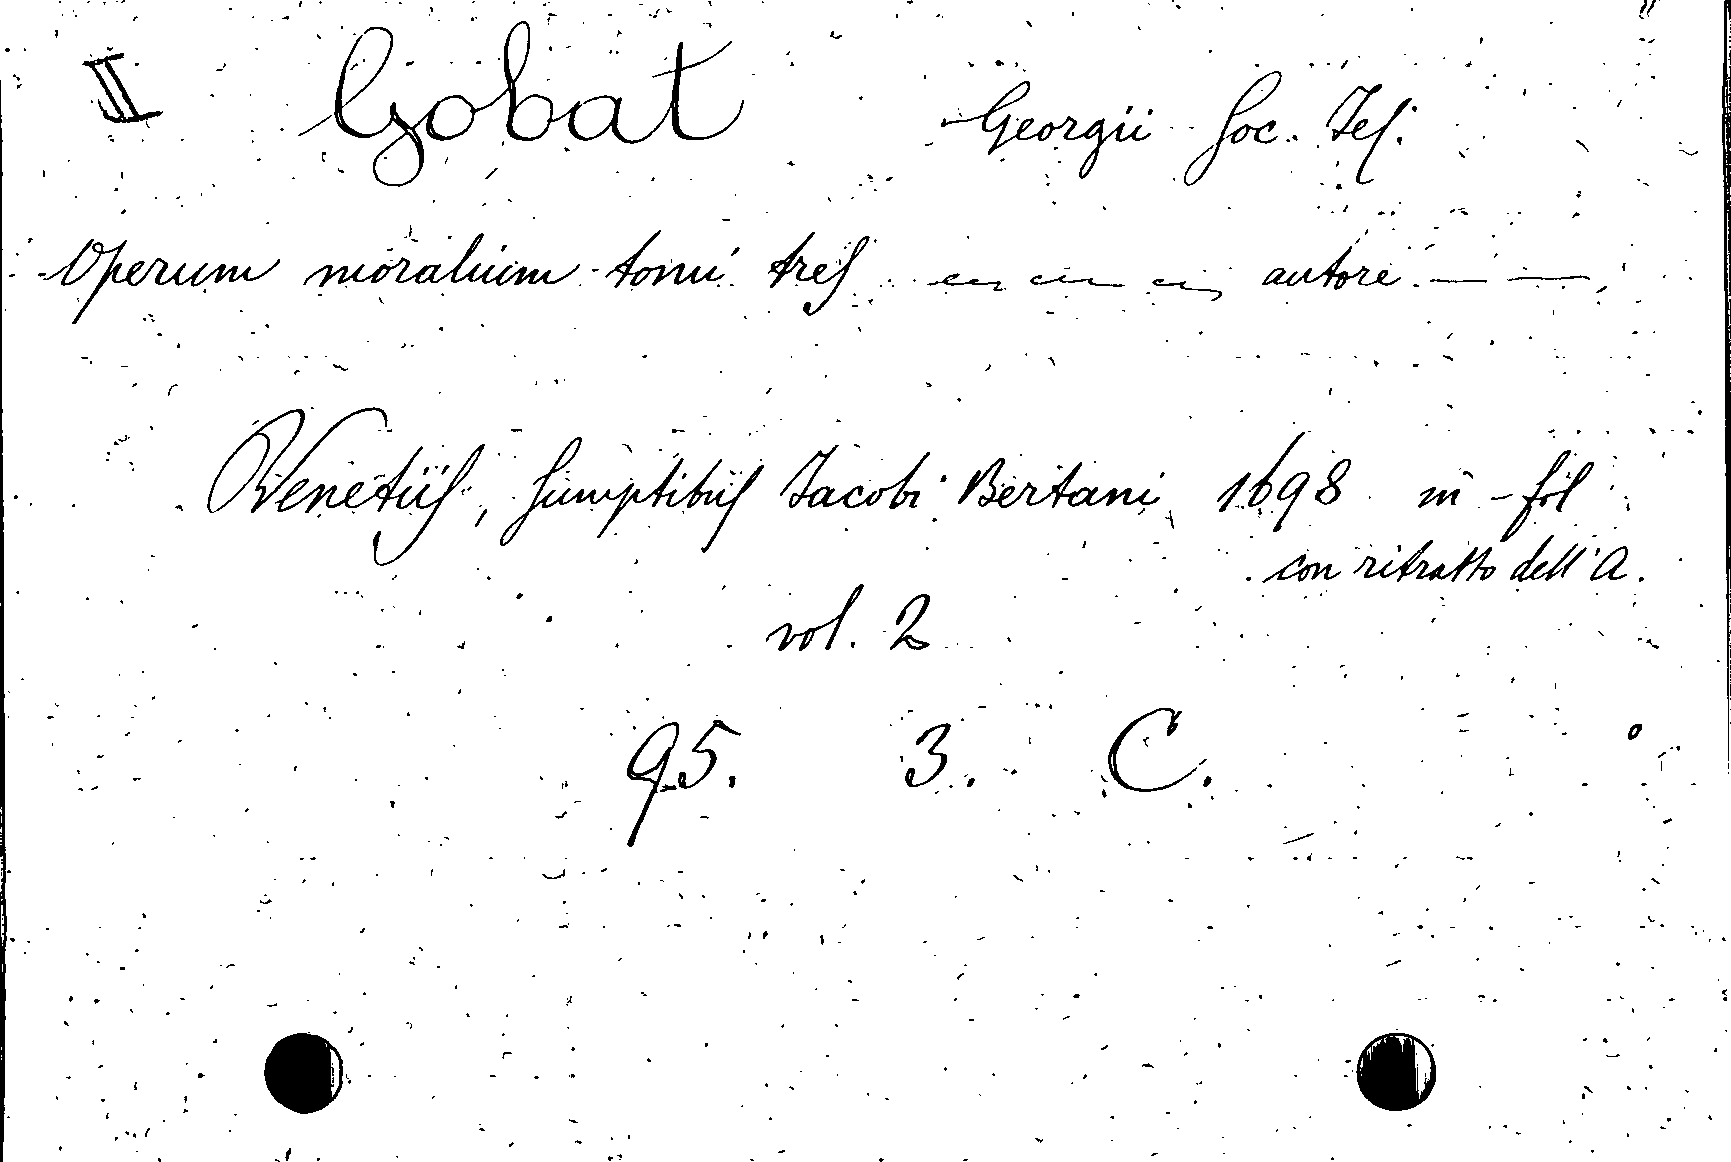 II Gobat Georgii Soc. Jes.
Operum moralium tomi tres — — — autore — —
Venetiis, sumptibus Jacobi Bertani 1698 in-fol
con ritratto dell'A.
vol. 2
95. 3. C.